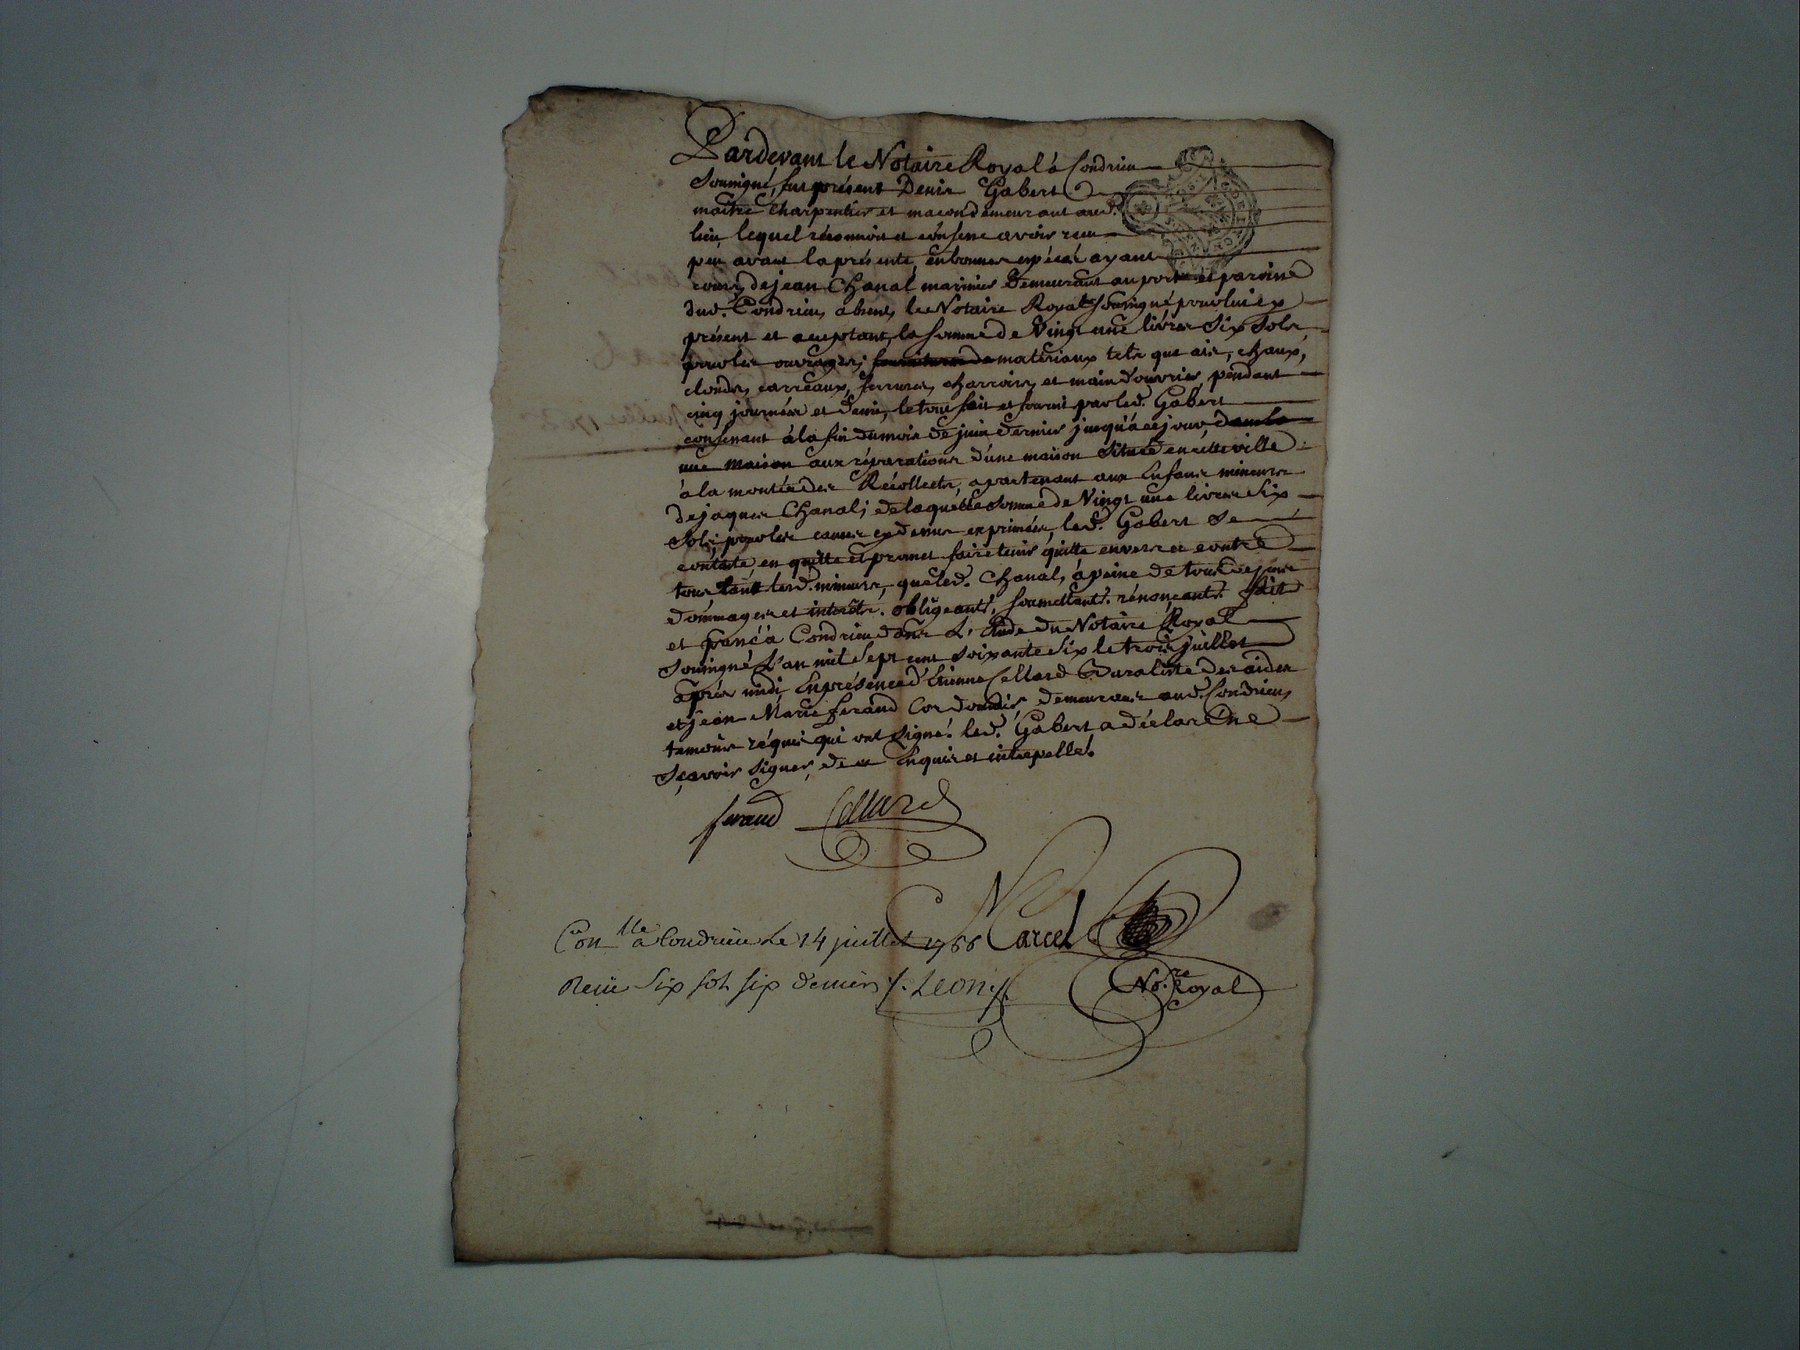 Pardevant le Notaire Royal à Condrieu
Soussigné, fut présent Denis Gabert
maitre charpentier et macon demeurant aud.
lieu, lequel réconnoit et consent avoir recu
peu avant la présente, en bonnes espéces ayant
cours, de jean Chanal marinier demeurant au port et paroisse
dud. Condrieu, absent, le Notaire Royal Soussigné pour lui
présent et aceptant, la somme de Vingt une livres Six sols
pour les ouvrages, fourniture de materiaux tels que ais, chaux,
clouds, carreaux, serrures, charrois, et main d'ouvrier, pendant
cinq journées et demi, le tout fait et fourni par led. Gabert
à la fin du mois de juin dernier jusqu'à cejour dans la
une maison aux réparations d'une maison Située en cette ville
à la montée des Récollects, apartenant aux Enfans mineurs
de jaques Chanal; de laquelle somme de Vingt une livres Six
Sols, pour les causes cy dessus exprimées, led. Gabert Se
contente, en quitte et promet faire tenir quitte envers et contre
tous tant lesd. mineurs, que led. Chanal, à peine de tous dépens
dommages et intérêts. obligeants, soumettants, rénonçants. fait
et passé à Condrieu dans L'Etude du Notaire Royal
Soussigné L'an mil Sept cent soixante Six le trois juillet
après midi, En présence d'Etienne Cellard Buraliste des aides
et jean Marie feraud Cordonnier, demeurans aud. Condrieu,
temoins réquis qui ont signé. led. Gabert a déclaré ne
Sçavoir signer, de ce Enquis et interpellé.
feraud Cellard
Con.lle a Condrieu Le 14 juillet 1766 Marcel
Reçu Six sols six deniers /. Leon /. No.re Royal